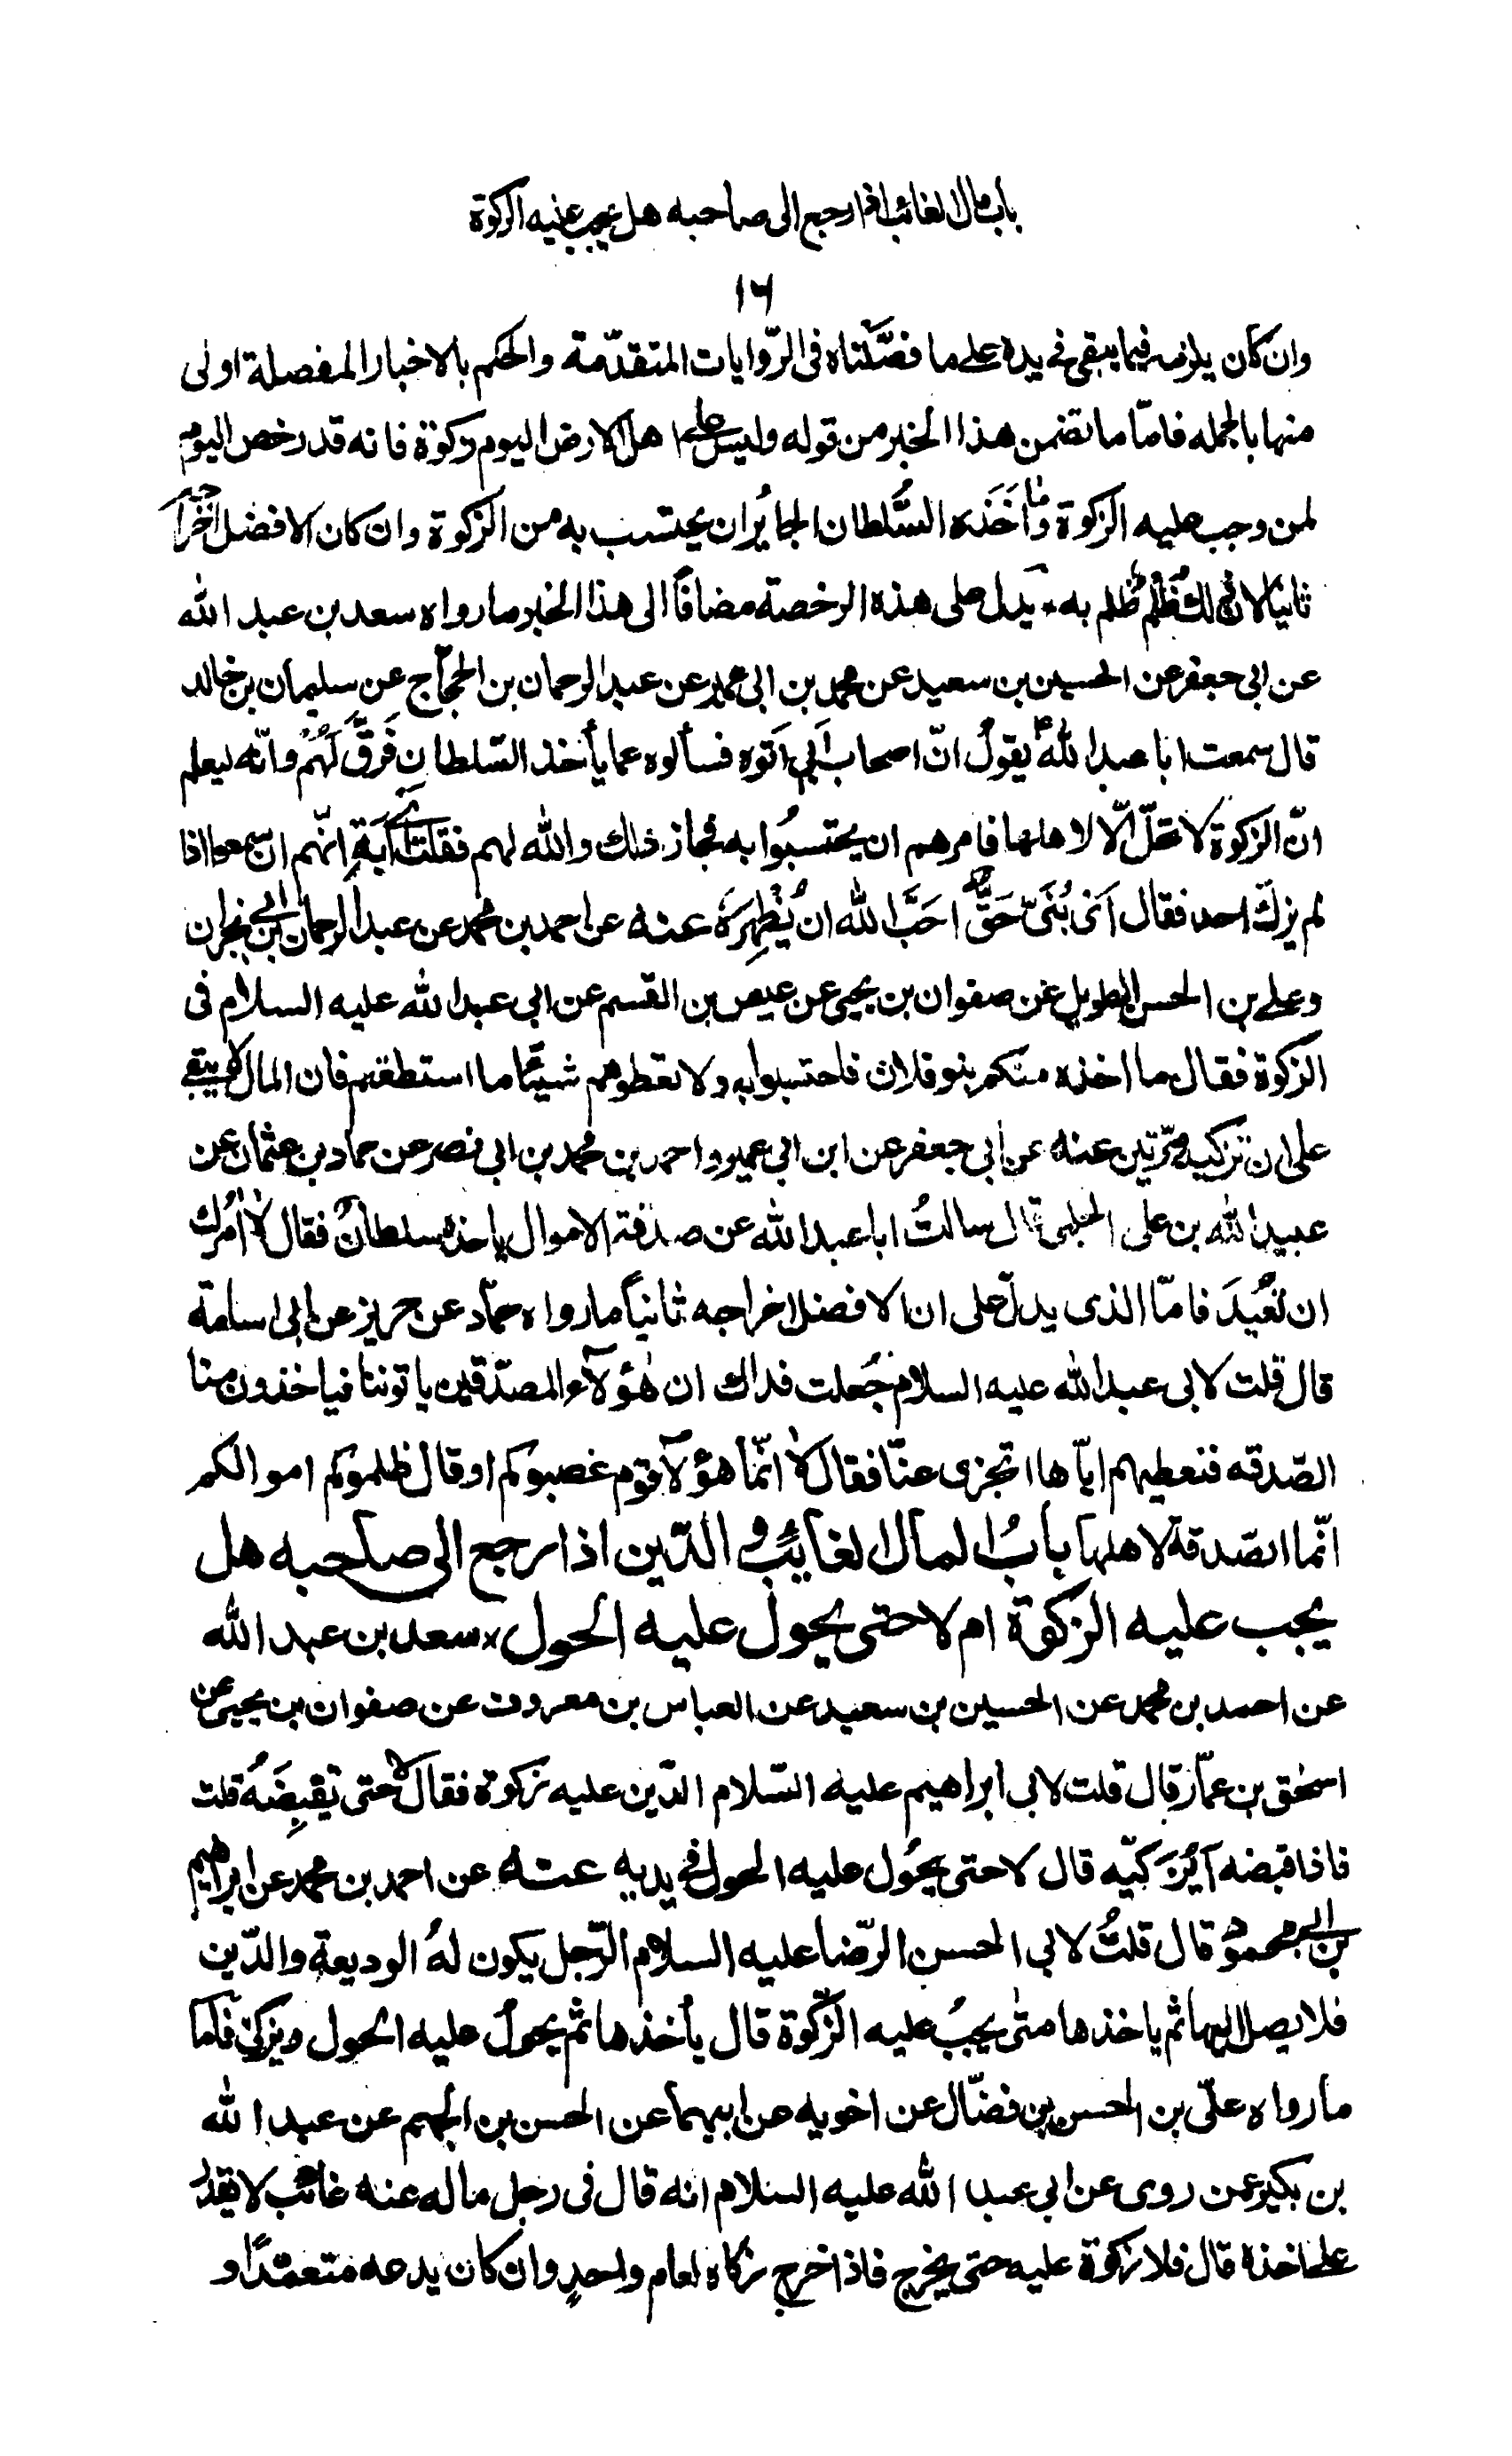 باب مال الغائب اذا رجع الى صاحبه هل يجب عليه الزكوة
١٦
وان كان يلزمه فيما يبقى فى يده على ما فصّلناه فى الرّوايات المتقدّمة والحكم بالاخبار المفصلة اولى
منها بالجمله فامّا ما تضمن هذا الخبر من قوله وليس على اهل الارض اليوم زكوة فانه قد رخص اليوم
لمن وجب عليه الزكوة وأخذه السُّلطان الجائر ان يحتسب به من الزكوة وان كان الافضل
ثانيا لان ذلك ظُلم ظُلم به يدل على هذه الرخصة مضافًا الى هذا الخبر ما رواه سعد بن عبد الله
عن ابى جعفر عن الحسين بن سعيد عن محمد بن ابى عمير عن عبد الرحمان بن الحجّاج عن سليمان بن خالد
قال سمعت ابا عبد الله ع يقولُ انّ اصحاب اَبى اَتوه فسألوه عما يأخذ السّلطان فَرَقَّ لَهُمْ وانّه ليعلم
انّ الزكوة لا تحلّ الّا لاهلها فامرهم ان يحتسبُوا به فجاز ذلك والله لهم فقلت يا اَبَةِ انّهم ان سمعوا اذا
لم يزكّ احد فقال اى بُنَىّ حَقٌّ احَبَّ الله ان يُظْهِرَهُ عنه عن احمد بن محمد عن عبد الرحمان بن ابى نجران
وعلى بن الحسن الطويل عن صفوان بن يحيى عن عيص بن القسم عن ابى عبد الله عليه السلام فى
الزكوة فقال ما اخذه منكم بنو فلان فاحتسبوا به ولا تعطوهم شيئًا ما استطعتم فان المال لا يبقى
على ان تزكيه مرّتين عنه عن ابى جعفر عن ابن ابى عمير واحمد بن محمد بن ابى نصر عن حماد بن عثمان عن
عبيد الله بن على الحلبى قال سالتُ ابا عبد الله عن صدقة الاموال ياخذه سلطانٌ فقال لا اٰمُرُك
ان تُعُيدَ فامّا الذى يدلّ على ان الافضل اخراجه ثانياً ما رواه حمّاد عن حريز عن ابى اسامة
قال قلت لابى عبد الله عليه السلام جُعلت فداك ان هٰؤلآء المصدّقين ياتوننا فياخذون منا
الصّدقه فنعطيهم ايّاها اتجزى عنّا فقال لا انّما هؤلآ قوم غصبوكم او قال ظلموكم اموالكم
انّما الصّدقة لاهلها بابُ المال الغايب و الدّين اذا رجع الى صاحبه هل
يجب عليه الزكوة ام لا حتى يحول عليه الحول سعد بن عبد الله
عن احمد بن محمد عن الحسين بن سعيد عن العباس بن معروف عن صفوان بن يحيى عن
اسحٰق بن عمّار قال قلت لابى ابراهيم عليه السّلام الدّين عليه زكوة فقال لا حتى يَقبِضَهُ قلت
فاذا قبضه اَيُزَكّيه قال لا حتى يحُول عليه الحول فى يديه عنه عن احمد بن محمد عن ابراهيم
بن ابى محمود قال قلتُ لابى الحسن الرّضا عليه السلام الرّجل يكون لهُ الوديعة والدّين
فلا يصل اليها ثم ياخذها متٰى يجبُ عليه الزّكوة قال يأخذها ثم يحول عليه الحول ويزكى فامّا
ما رواه علىّ بن الحسن بن فضّال عن اخويه عن ابيهما عن الحسن بن الجهم عن عبد الله
بن بكير عمن روى عن ابى عبد الله عليه السلام انه قال فى رجل ماله عنه غائب لا يقدر
على اخذه قال فلا زكوة عليه حتى يخرج فاذا خرج زكاه لعام واحدٍ وان كان يدعه متعمّدًا و